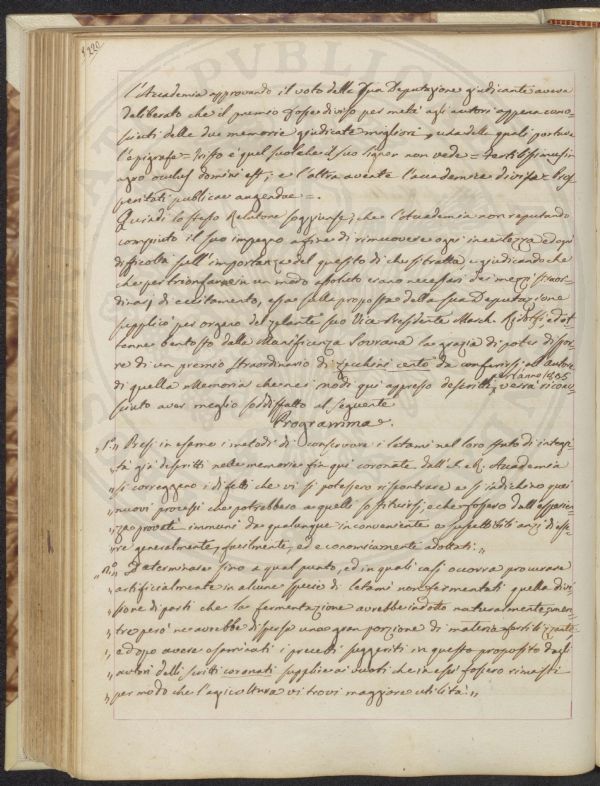 220
L'Accademia approvando il voto della Sua Deputazione giudicante aveva
deliberato che il premio fosse diviso per metà agli autori appena cono-
sciuti delle due memorie giudicate migliori, una delle quali portava
l'epigrafe = Tristo è quel suol che il suo signor non vede = fertilissimus in
agro oculus domini est; e l'altra avente l'accademica divisa = Pros-
peritati publicae augendae =.
Quindi lo stesso Relatore soggiunse, che l'Accademia non reputando
compiuto il suo impegno affine di rimuovere ogni incertezza ed ogni
difficoltà sull'importanza del quesito di che si tratta, e giudicando che
che per trionfarne in un modo assoluto erano necessari dei mezzi straor-
dinarj di eccitamento, essa sulla proposta della sua Deputazione
supplicò per organo del zelante suo Vice-Presidente March. Ridolfi, ed ot-
tenne bentosto dalla Munificenza Sovrana la grazia di poter dispor-
re di un premio straordinario di zecchini cento da conferirsi all'autore
di quella Memoria che nei modi qui appresso descritti, verrà ricono-
sciuto aver meglio soddisfatto al seguente
Programma.
"1.° Presi in esame i metodi di conservare i letami nel loro stato di integri-
"tà già descritti nelle memorie fin qui coronate dall' Accademia
"si correggano i difetti che vi si potessero riscontrare e si indichino quei
"nuovi processi che potrebbero a quelli sostituirsi, e che fossero dall'esperien-
"za provati immuni da qualunque inconveniente e suscettibili anzi di esse-
"re generalmente, facilmente, ed economicamente adottati."
"2.° Determinare fino a qual punto, ed in quali casi occorra procurare
"artificialmente in alcune specie di letami non fermentati quella divi-
"sione di parti che la fermentazione avrebbe indotto naturalmente, men-
"tre però ne avrebbe dispersa una gran porzione di materia fertilizzante,
"e dopo avere esaminati i precetti suggeriti in questo proposito dagli
"autori delli scritti coronati supplire ai vuoti che in essi fossero rimasti
"per modo che l'agricoltura vi trovi maggiore utilità."